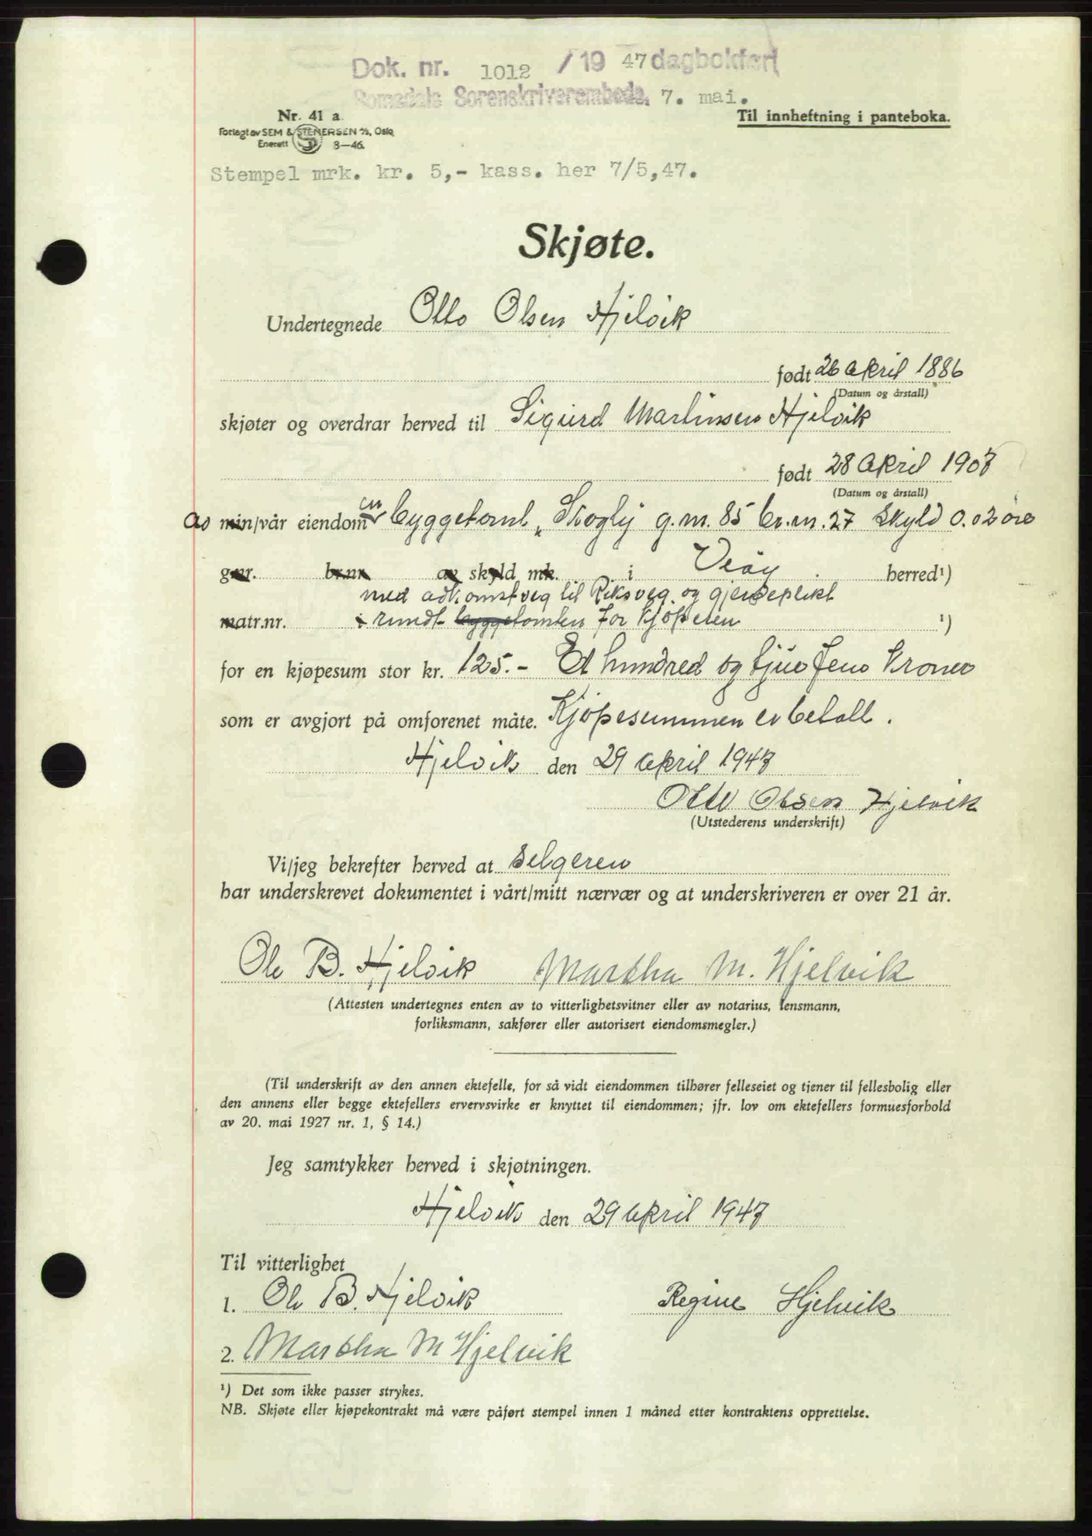 Dok. nr. 1012 / 19 47 dagbokført
Romsdals Sorenskriverembede, 7. mai.
Nr. 41 a
Til innheftning i panteboka.
Forlagt av SEM & STENERSEN A/S, Oslo
Enerett 8—46.
Stempel mrk. kr. 5,- kass. her 7/5,47.
Skjøte.
Undertegnede Otto Olsen Hjelvik
født 26 April 1886
(Datum og årstall)
skjøter og overdrar herved til Sigurd Martinsen Hjelvik
født 28 April 1907
(Datum og årstall)
av min/vår eiendom en byggetomt „ Skogly g.nr. 85 br.nr. 27 skyld 0.02 øre
gnr. br.nr. av skyld mk. i Veøy herred¹)
med adkomstveg til Riksveg og gjerdeplikt
matr.nr. i rundt byggetomten for kjøperen ¹)
for en kjøpesum stor kr. 125.- Et hundred og tjue fem kroner
som er avgjort på omforenet måte. Kjøpesummen er betalt.
Hjelvik den 29 April 1947
Otto Olsen Hjelvik
(Utstederens underskrift)
Vi/jeg bekrefter herved at selgeren
har underskrevet dokumentet i vårt/mitt nærvær og at underskriveren er over 21 år.
Ole B. Hjelvik Martha M. Hjelvik
(Attesten undertegnes enten av to vitterlighetsvitner eller av notarius, lensmann,
forliksmann, sakfører eller autorisert eiendomsmegler.)
(Til underskrift av den annen ektefelle, for så vidt eiendommen tilhører felleseiet og tjener til fellesbolig eller
den annens eller begge ektefellers ervervsvirke er knyttet til eiendommen; jfr. lov om ektefellers formuesforhold
av 20. mai 1927 nr. 1, § 14.)
Jeg samtykker herved i skjøtningen.
Hjelvik den 29 April 1947
Til vitterlighet
1. Ole B. Hjelvik Regine Hjelvik
2. Martha M Hjelvik
¹) Det som ikke passer strykes.
NB. Skjøte eller kjøpekontrakt må være påført stempel innen 1 måned etter kontraktens opprettelse.